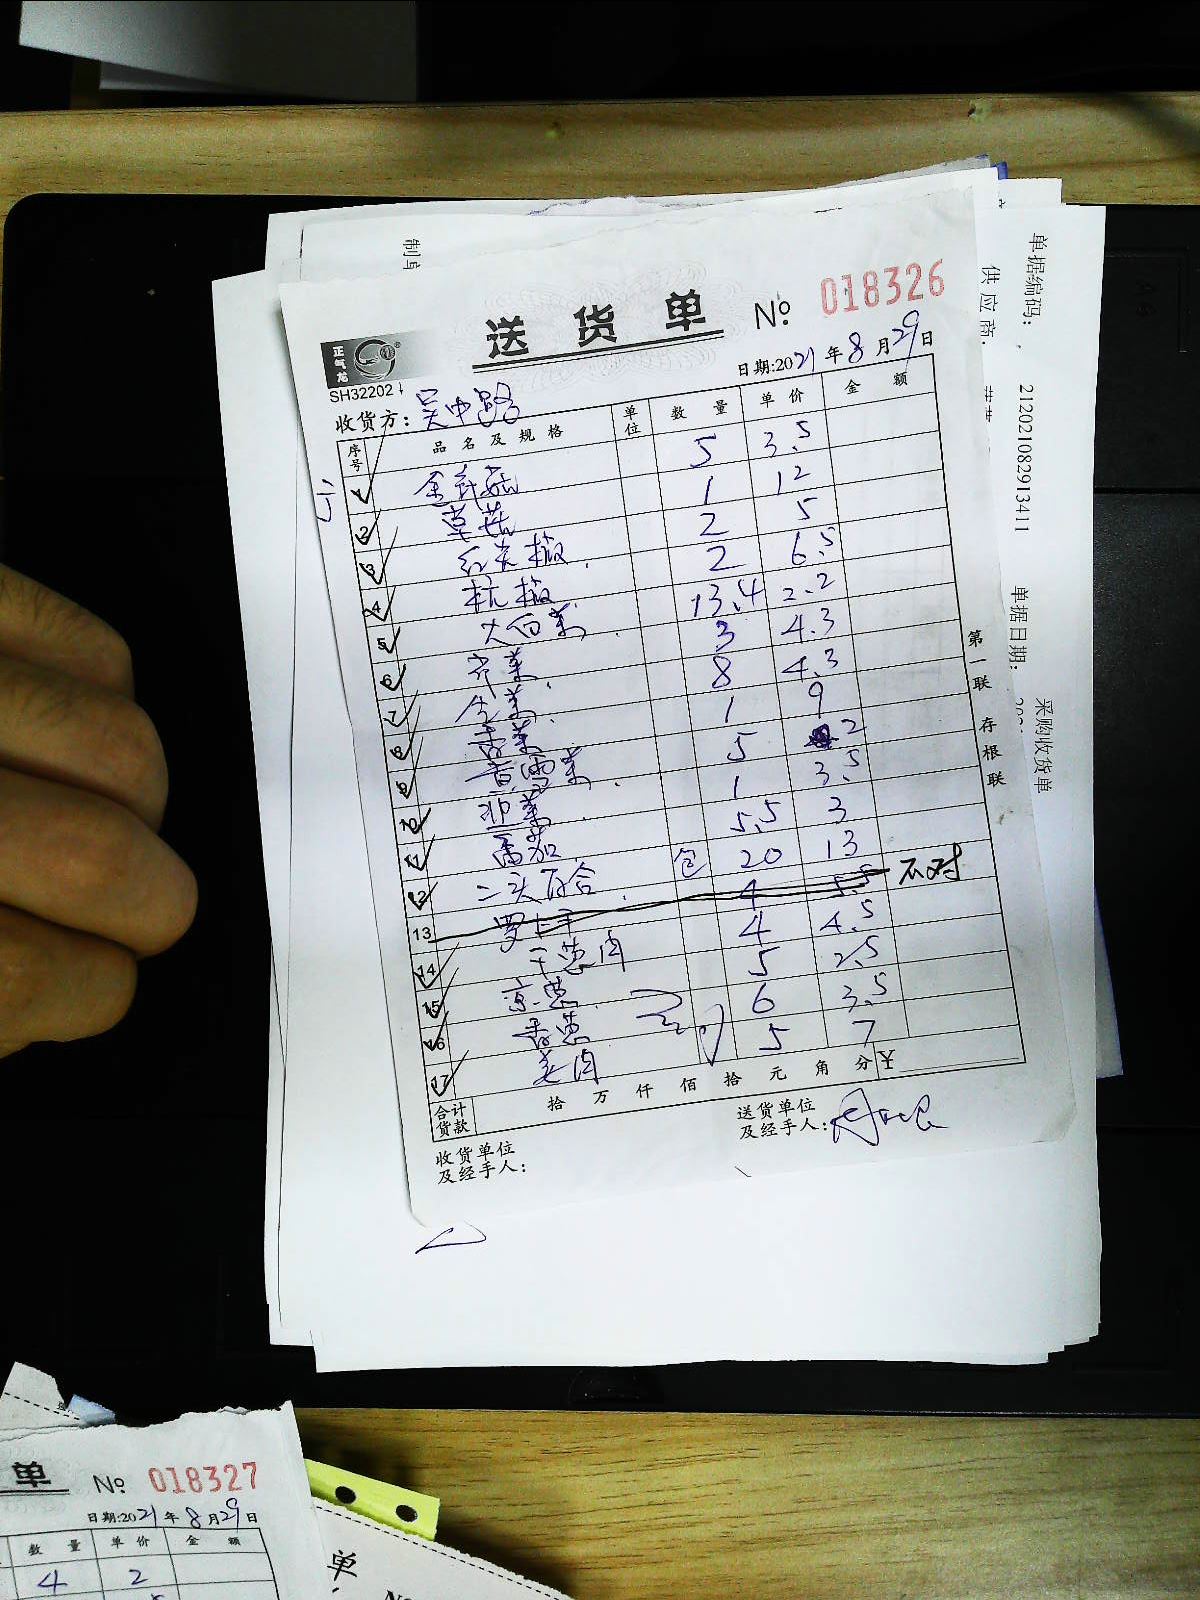 制单
单据编码:
供应商:
212021082913411
单据日期:
采购收货单
送货单 № 018326
正气龙
SH32202
日期:2021年8月29日
收货方: 吴中路
序号 品名及规格 单位 数量 单价 金额
1 金针菇 5 3.5
2 草菇 1 12
3 红尖椒 2 5
4 杭椒 2 6.5
5 大白菜 13.4 2.2
6 芹菜 3 4.3
7 生菜 8 4.3
8 香菜 1 9
9 5 2
10 韭菜 1 3.5
11 番茄 5.5 3
12 二头百合 包 20 13
13 4 5.5 不对
14 干葱肉 4 4.5
15 京葱 5 2.5
16 香葱 6 3.5
17 姜肉 5 7
合计货款 拾 万 仟 佰 拾 元 角 分 ¥
收货单位及经手人:
送货单位及经手人:
第一联 存根联
单 № 018327
日期:2021年8月29日
数量 单价 金额
4 2
单